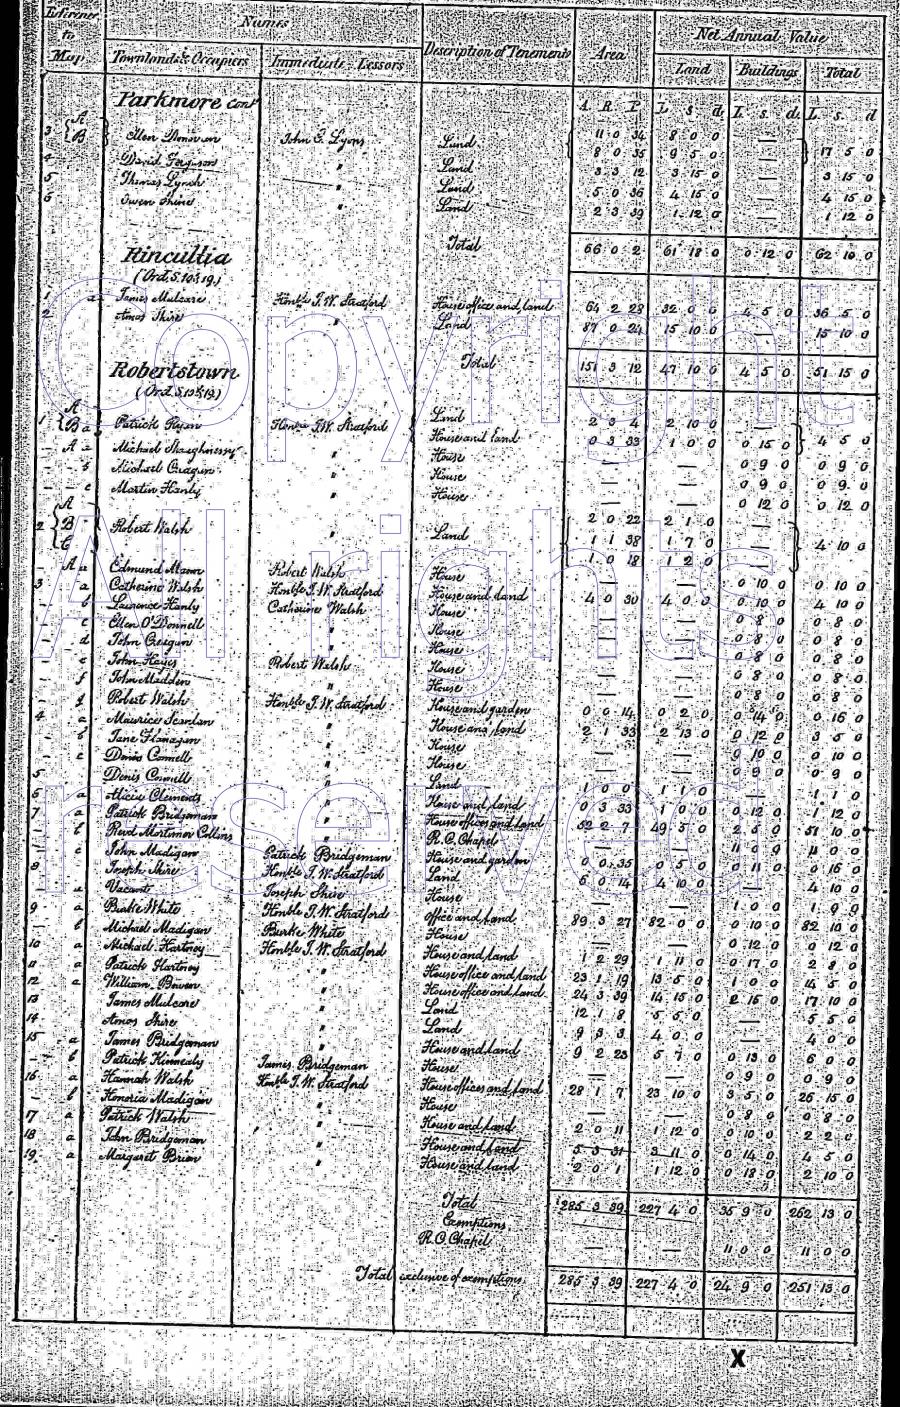 Reference to Map
Names
Townlands & Occupiers
Immediate Lessors
Description of Tenement
Area
Net Annual Value
Land
Buildings
Total
A. R. P. L. s. d. L. s. d. L. s. d.
Parkmore cont
3 A B Ellen Donovan John C. Lyons Land 11 0 34 8 0 0 —
8 0 35 9 5 0 — 17 5 0
4 David Ferguson " Land 3 3 12 3 15 0 — 3 15 0
5 Thomas Lynch " Land 5 0 36 4 15 0 — 4 15 0
6 Owen Shine " Land 2 3 39 1 12 0 — 1 12 0
Total 66 0 2 61 18 0 0 12 0 62 10 0
Rincullia
(Ord. S. 10 & 19.)
1 a James Mulcare Honble J. W. Stratford House office and land 64 2 28 32 0 0 4 5 0 36 5 0
2 Amos Shire " Land 87 0 24 15 10 0 — 15 10 0
Total 151 3 12 47 10 0 4 5 0 51 15 0
Robertstown
(Ord. S. 10 & 19.)
1 A B a Patrick Ryan Honble J. W. Stratford Land 2 3 4 2 10 0 —
House and land 0 3 33 1 0 0 0 15 0 4 5 0
A a Michael Shaughnessy " House — — 0 9 0 0 9 0
b Michael Cragan " House — — 0 9 0 0 9 0
c Martin Hanly " House — — 0 12 0 0 12 0
2 A B C Robert Walsh " Land 2 0 22 2 1 0 —
1 1 38 1 7 0 —
1 0 18 1 2 0 — 4 10 0
A a Edmund Mann Robert Walsh House — — 0 10 0 0 10 0
3 a Catherine Walsh Honble J. W. Stratford House and land 4 0 30 4 0 0 0 10 0 4 10 0
b Laurence Hanly Catherine Walsh House — — 0 8 0 0 8 0
c Ellen O'Donnell " House — — 0 8 0 0 8 0
d John Cregan " House — — 0 8 0 0 8 0
e John Hayes Robert Walsh House — — 0 8 0 0 8 0
f John Madden " House — — 0 8 0 0 8 0
g Robert Walsh Honble J. W. Stratford House and garden 0 0 14 0 2 0 0 14 0 0 16 0
4 a Maurice Scanlan " House and land 2 1 33 2 13 0 0 12 0 3 5 0
b Jane Flanagan " House — — 0 10 0 0 10 0
c Denis Connell " House — — 0 9 0 0 9 0
5 Denis Connell " Land 1 0 0 1 1 0 — 1 1 0
6 a Alicia Clements " House and land 0 3 33 1 0 0 0 12 0 1 12 0
7 a Patrick Bridgeman " House offices and land 52 2 7 49 5 0 2 5 0 51 10 0
b Revd Mortimer Collins " R.C. Chapel — — 11 0 0 11 0 0
c John Madigan Patrick Bridgeman House and garden 0 0 35 0 5 0 0 11 0 0 16 0
8 Joseph Shire Honble J. W. Stratford Land 6 0 14 4 10 0 — 4 10 0
a Vacant Joseph Shire House — — 1 0 0 1 0 0
9 a Burke White Honble J. W. Stratford Office and land 89 3 27 82 0 0 0 10 0 82 10 0
b Michael Madigan Burke White House — — 0 12 0 0 12 0
10 a Michael Hartney Honble J. W. Stratford House and land 1 2 29 1 11 0 0 17 0 2 8 0
11 a Patrick Hartney " House office and land 23 1 19 13 5 0 1 0 0 14 5 0
12 a William Bowen " House office and land 24 3 39 14 15 0 2 15 0 17 10 0
13 James Mulcare " Land 12 1 8 5 5 0 — 5 5 0
14 Amos Shire " Land 9 3 3 4 0 0 — 4 0 0
15 a James Bridgeman " House and land 9 2 23 5 7 0 0 13 0 6 0 0
b Patrick Kinnealy James Bridgeman House — — 0 9 0 0 9 0
16 a Hannah Walsh Honble J. W. Stratford House offices and land 28 1 7 23 10 0 3 5 0 26 15 0
b Honoria Madigan " House — — 0 8 0 0 8 0
17 a Patrick Walsh " House and land 2 0 11 1 12 0 0 10 0 2 2 0
18 a John Bridgeman " House and land 5 3 31 3 11 0 0 14 0 4 5 0
19 a Margaret Brien " House and land 2 0 1 1 12 0 0 18 0 2 10 0
Total 285 3 39 227 4 0 35 9 0 262 13 0
Exemptions,
R.C. Chapel — — 11 0 0 11 0 0
Total exclusive of exemptions. 285 3 39 227 4 0 24 9 0 251 13 0
X
Copyright
All rights
reserved